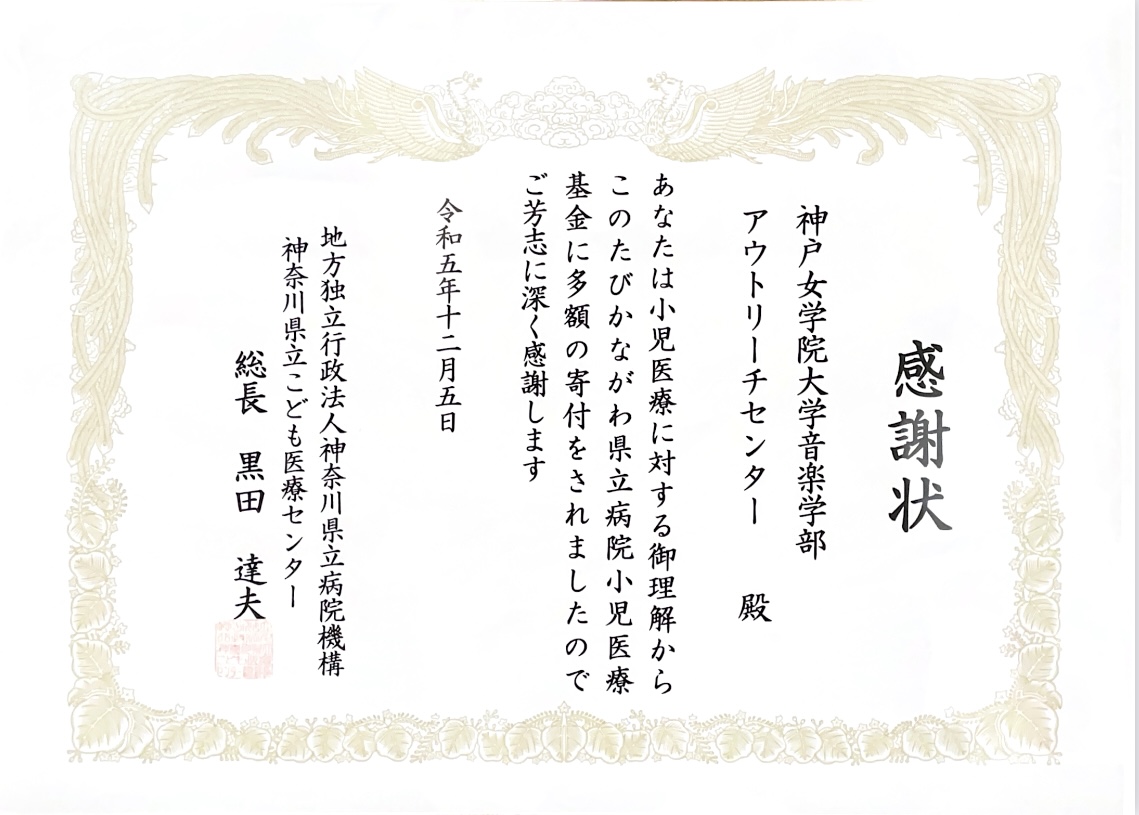 感謝状
神戸女学院大学音楽学部
アウトリーチセンター 殿
あなたは小児医療に対する御理解から
このたびかながわ県立病院小児医療
基金に多額の寄付をされましたので
ご芳志に深く感謝します
令和五年十二月五日
地方独立行政法人神奈川県立病院機構
神奈川県立こども医療センター
総長 黒田 達夫